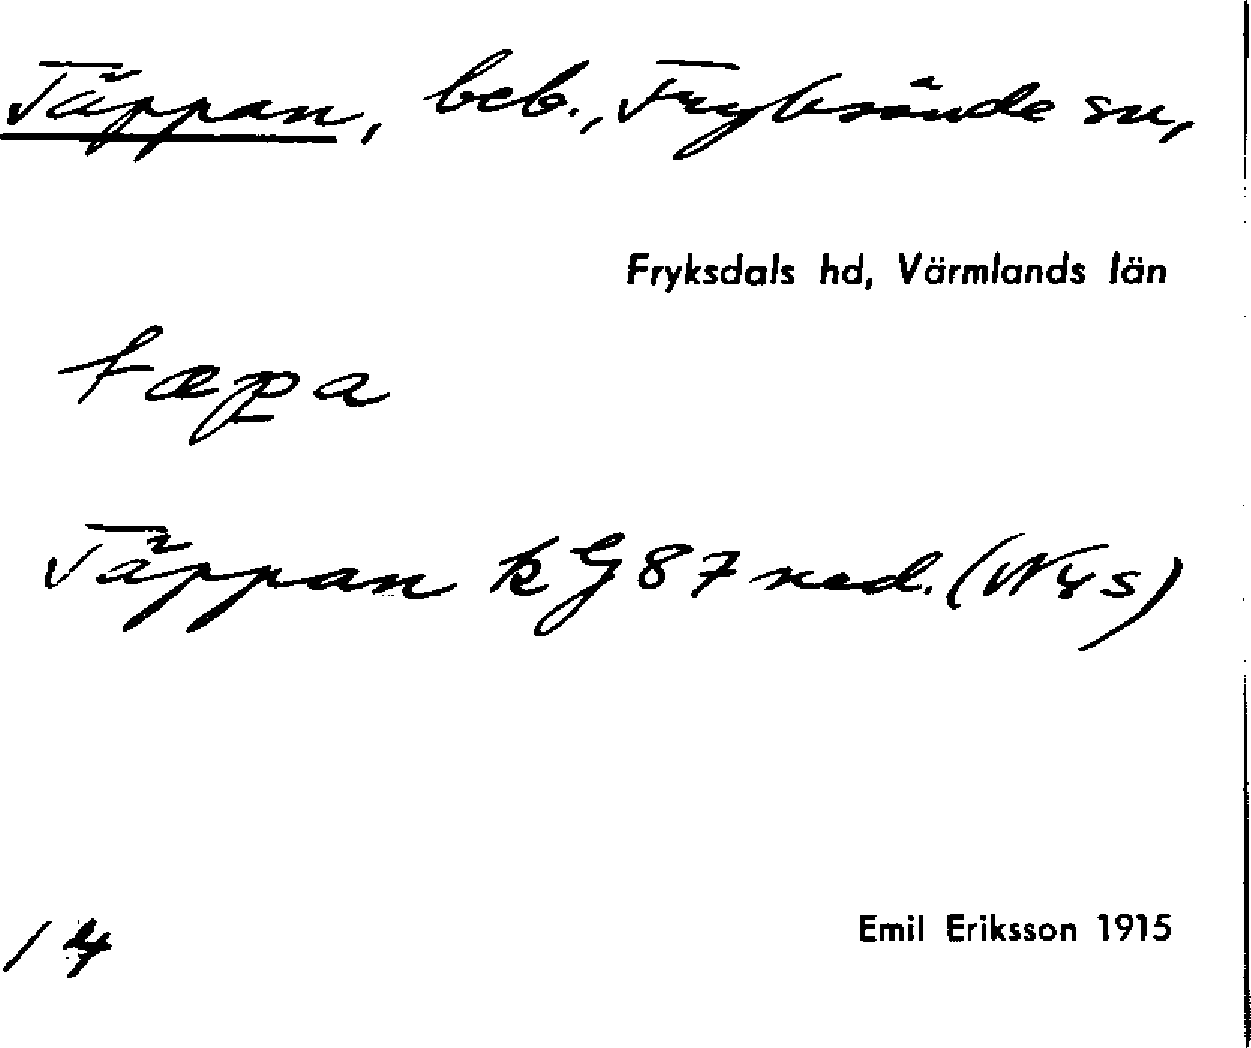 Täppan, beb., Fryksände sn,
Fryksdals hd, Värmlands län
tæpa
Täppan kG 87 ned. (Nys)
14
Emil Eriksson 1915